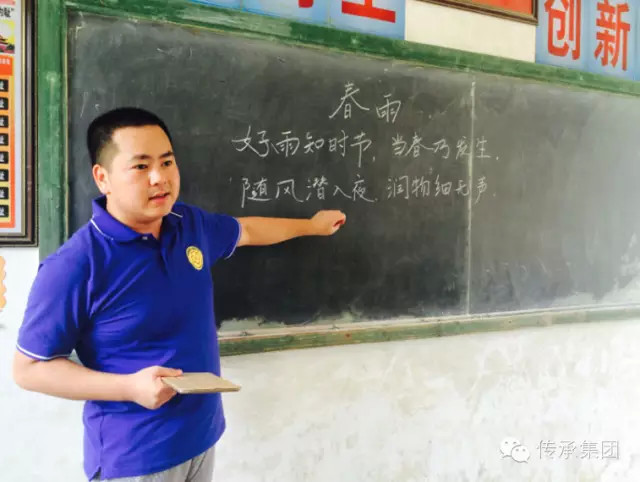 创新
春雨
好雨知时节,当春乃发生,
随风潜入夜,润物细无声.
传承集团